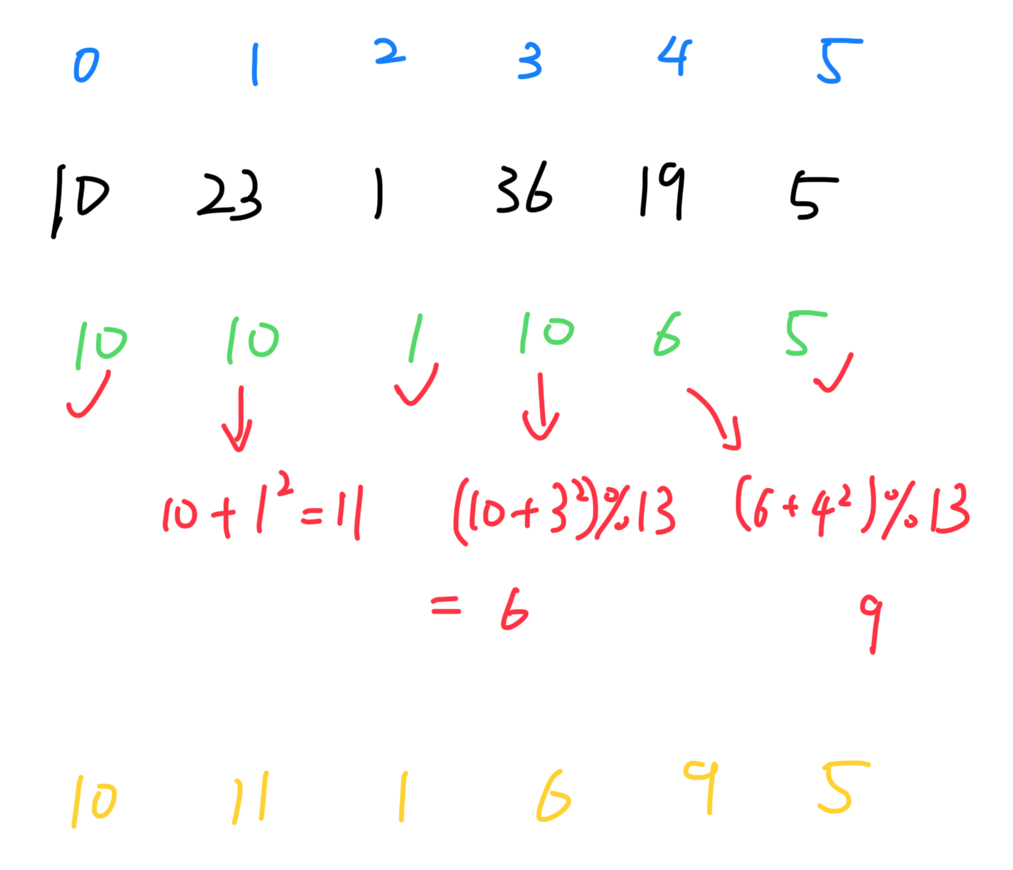 0 1 2 3 4 5
10 23 1 36 19 5
10 10 1 10 6 5
10+1²=11 (10+3²)%13 (6+4²)%13
= 6 9
10 11 1 6 9 5